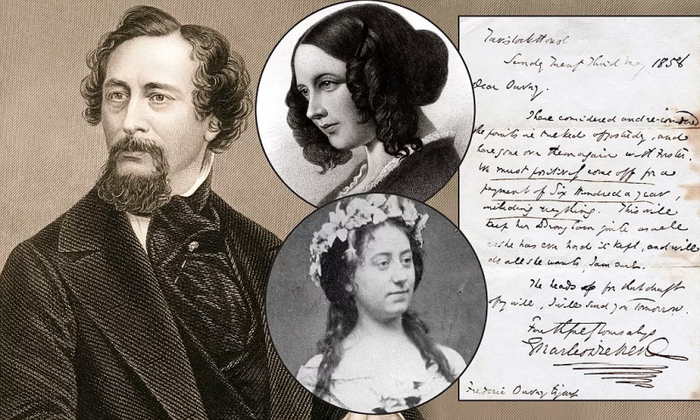 Tavistock House
Sunday Twenty Third May 1858
Dear Ouvry.
I have considered and re-considered
the points in
have gone over them again with Forster.
We must positively come off for a
payment of Six Hundred a year,
including everything. This will
keep her
as she has ever had it kept, and will
do all she wants, I am sure.
The heads for that draft
of my will, I will send you tomorrow.
Faithfully Yours always
Charles Dickens
Frederic Ouvry Esquire